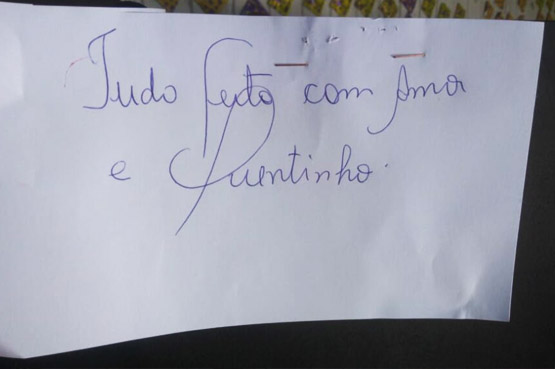 Tudo feito com Amor
e Quentinho.